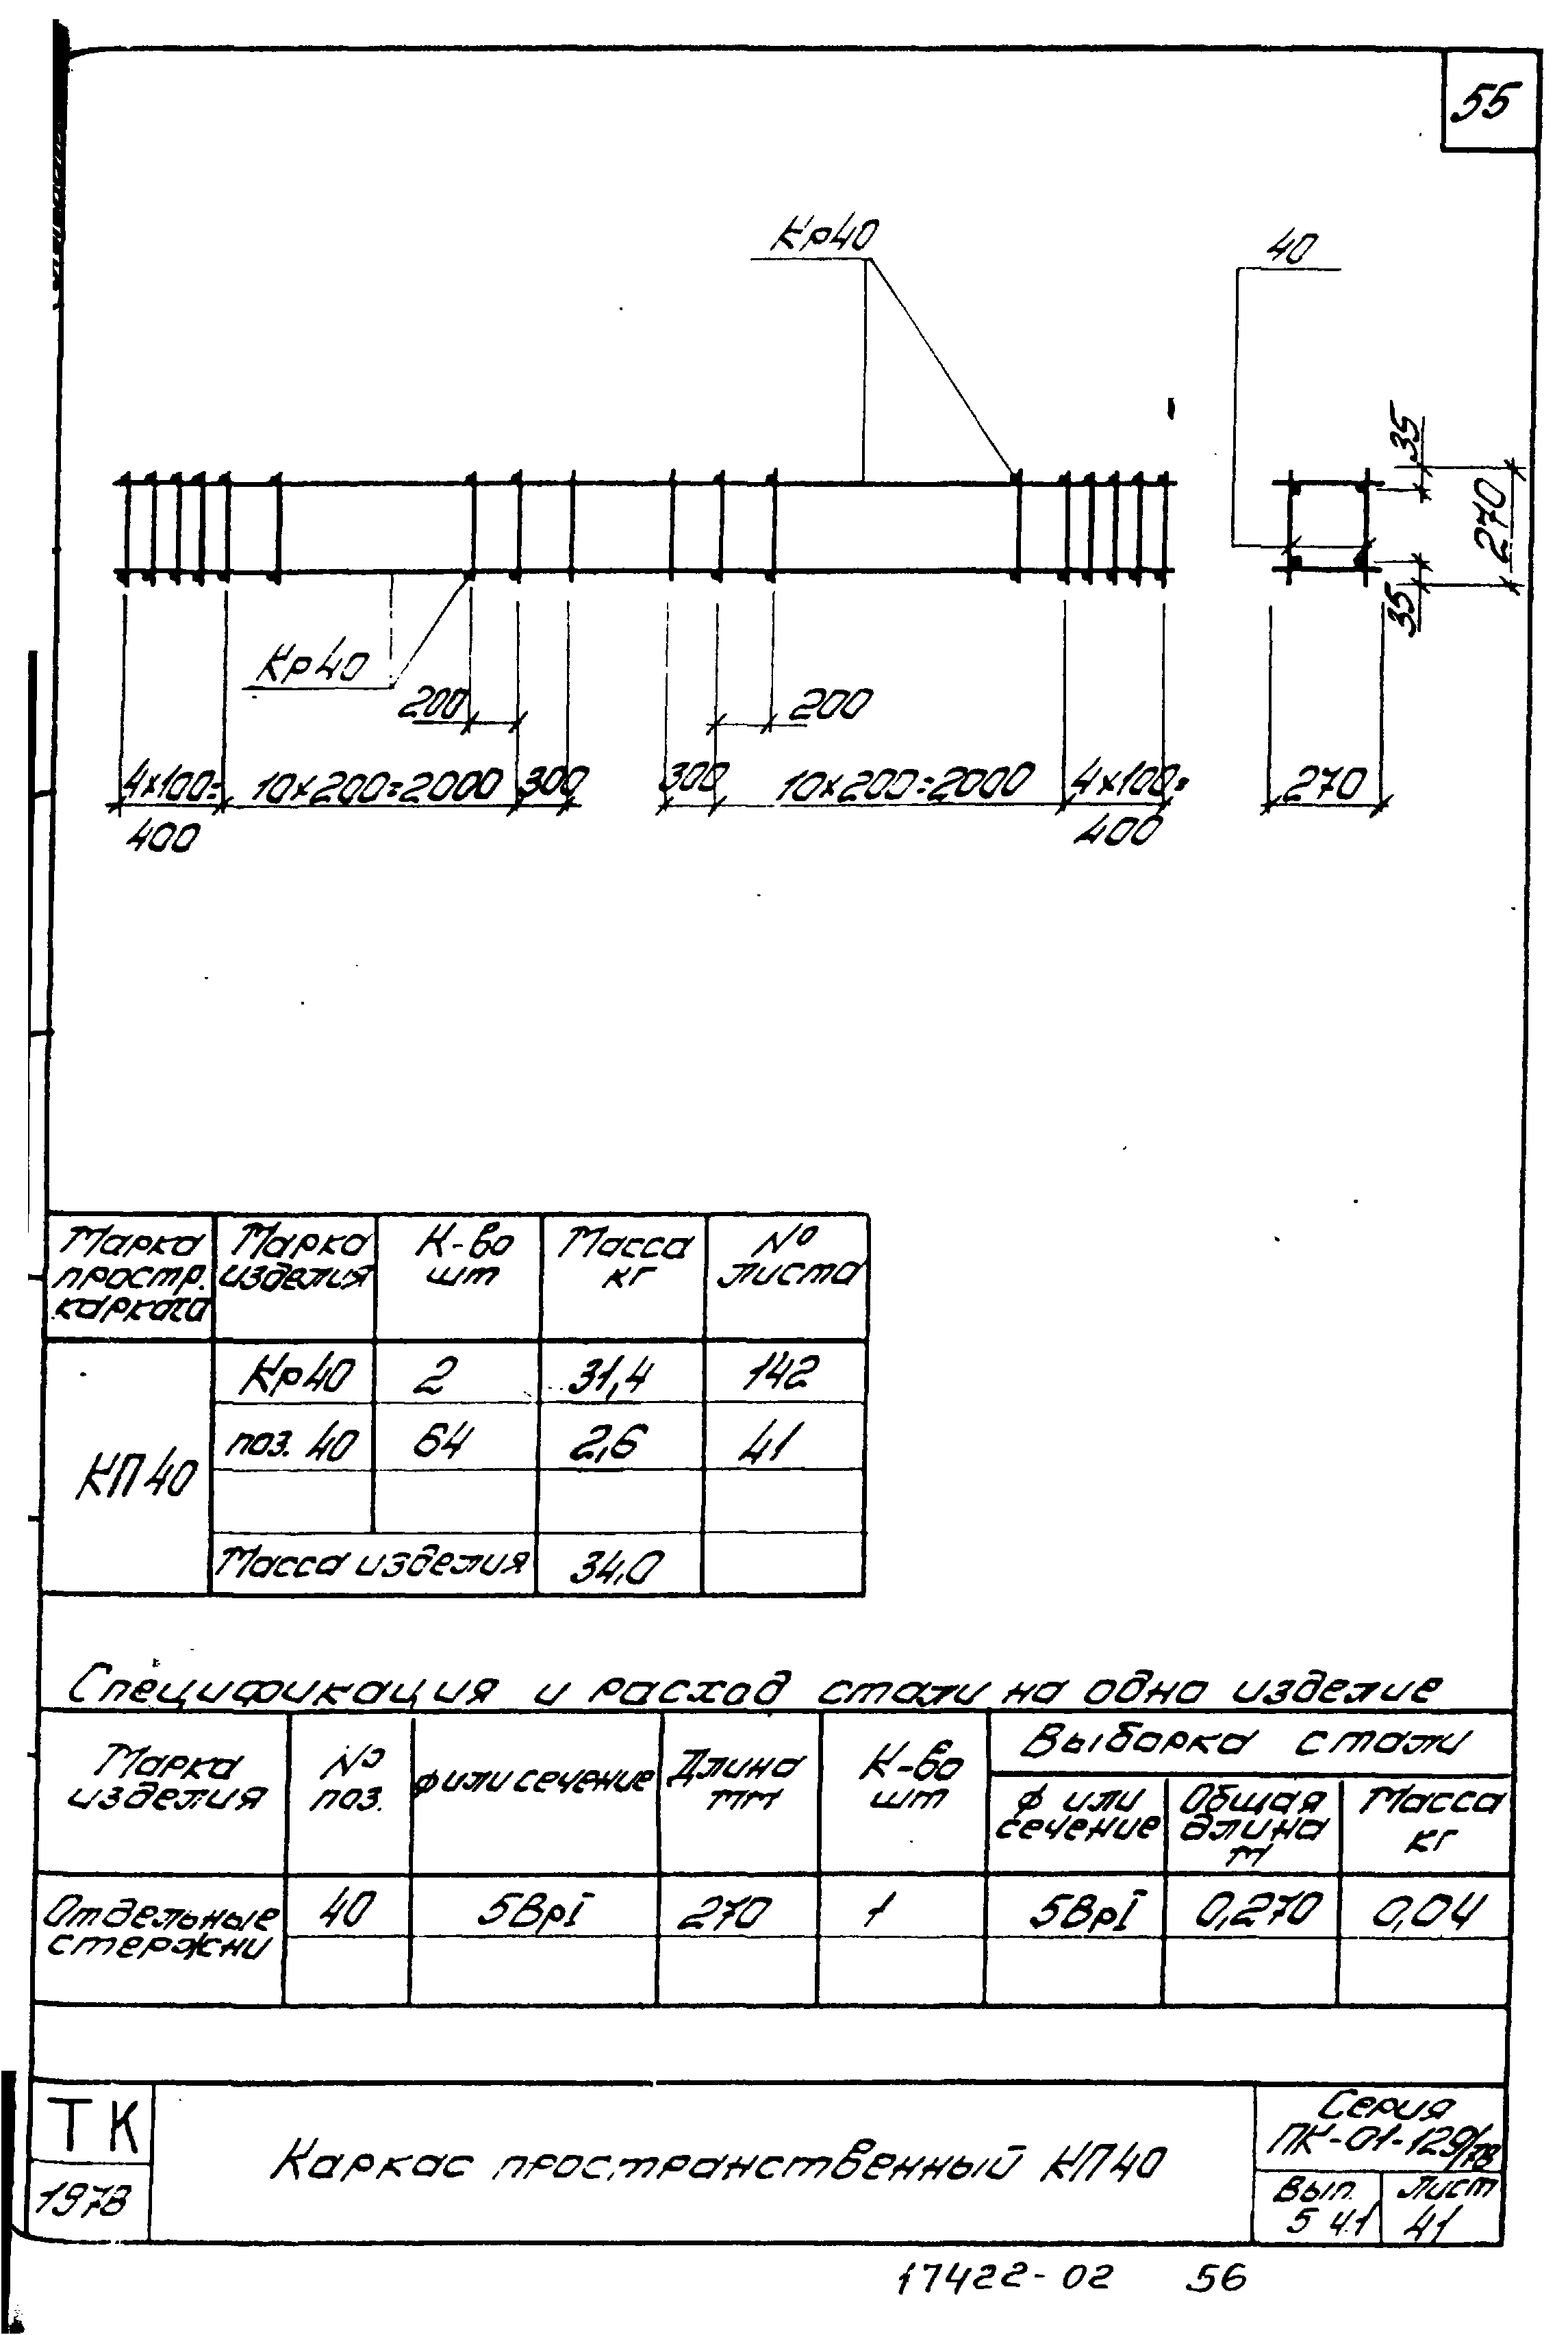 55
Кр40
40
35
270
35
Кр40
200
200
4х100=
10х200=2000
300
300
10х200=2000
4х100=
270
400
400
Марка простр. каркаса
Марка изделия
К-во шт
Масса кг
№ листа
КП40
Кр40 2 31,4 142
поз. 40 64 2,6 41
Масса изделия 34,0
Спецификация и расход стали на одно изделие
Марка изделия
№ поз.
ф или сечение
Длина мм
К-во шт
Выборка стали
ф или сечение
Общая длина м
Масса кг
Отдельные стержни
40 5ВрI 270 1 5ВрI 0,270 0,04
ТК
1978
Каркас пространственный КП40
Серия
ПК-01-129/78
Вып. 5 ч.1
Лист 41
17422-02 56